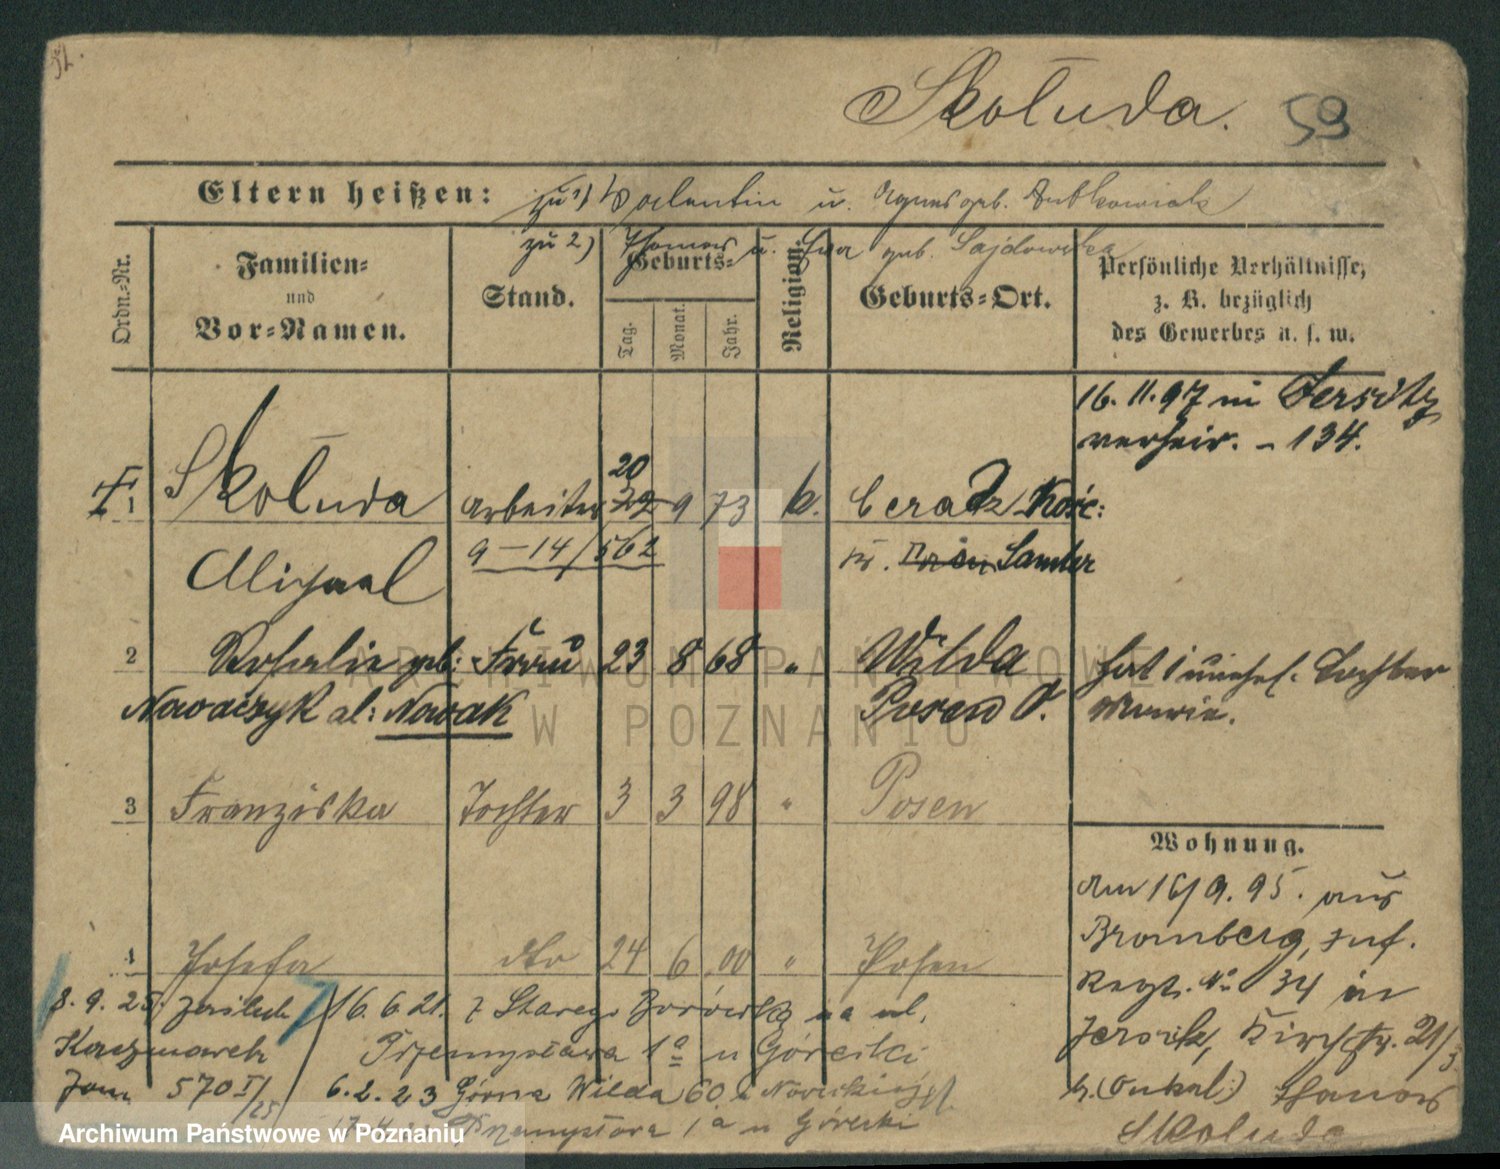 Skołuda. 59
Eltern heißen: zu 1) Valentin u. Agnes geb. Antkowiak
zu 2) Thomas u. Eva geb. Gajdowska
Ordn.-Nr.
Familien- und Vor-Namen.
Stand.
Geburts-
Tag. Monat. Jahr.
Religion.
Geburts-Ort.
Persönliche Verhältnisse,
z. B. bezüglich
des Gewerbes u. s. w.
16. 11. 97 in Jersitz
verheir. - 134.
1 Skołuda Arbeiter 20 22 9 73 k. Ceradz Kośc:
Michael 9-14/562 Kr. Posen Samter
2 Rosalie geb: Frau 23 8 68 " Wilda
Nowaczyk al: Nowak Posen O.
hat 1 unehel. Tochter
Marie.
3 Franziska Tochter 3 3 98 " Posen
4 Josefa dto 24 6 00 " Posen
Wohnung.
Am 16/9. 95. aus
Bromberg, Inf.
Regt. No 34 in
Jersitz, Kirchstr. 21/3
b. (Onkel:) Thomas
Skoluda
8. 9. 25. 16. 6. 21. z Starego na ul.
Kaczmarek Przemysława 1a u Górecki
Jan 570 I/25 6. 2. 23 Górna Wilda 60
Przemysława 1a u Górecki
ARCHIWUM PAŃSTWOWE
W POZNANIU
Archiwum Państwowe w Poznaniu